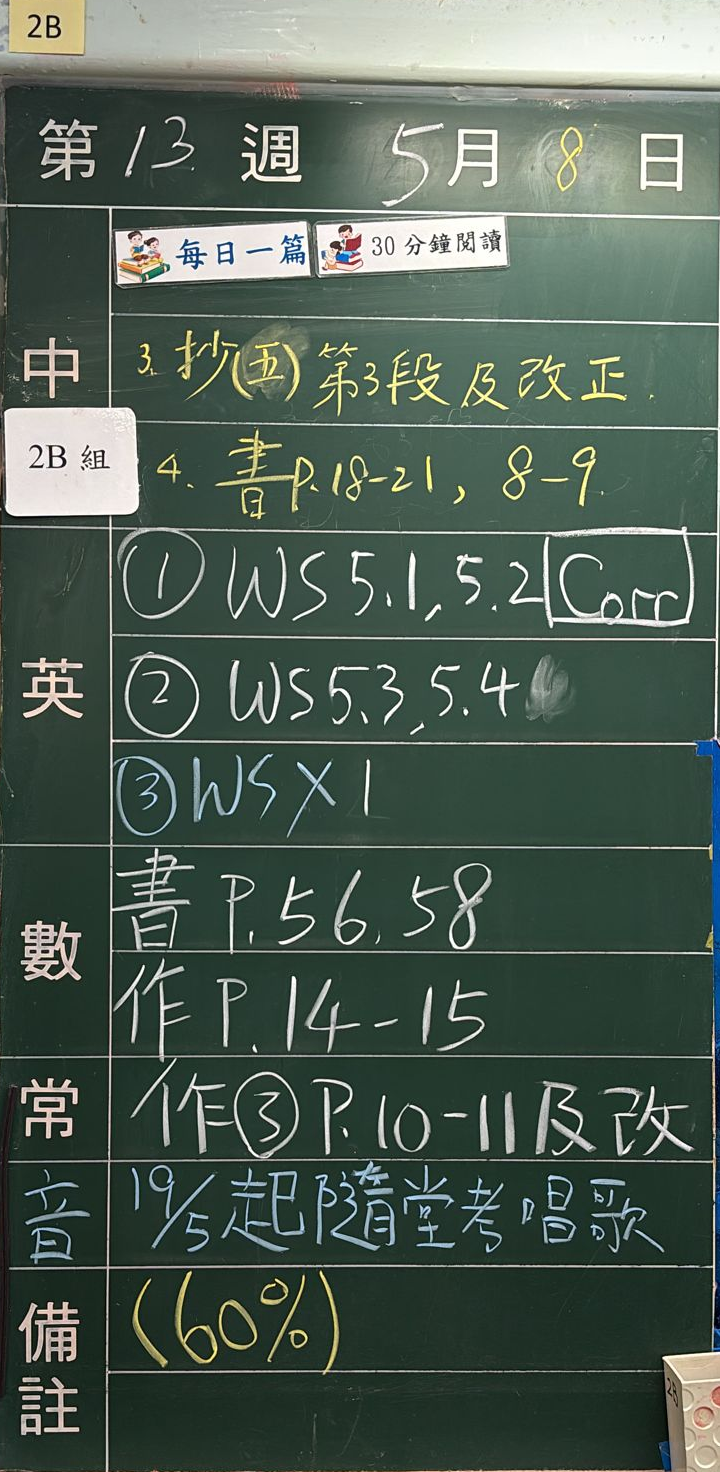 2B
第13週 5月8日
每日一篇 30分鐘閱讀
中
3. 抄(五)第3段及改正.
2B組
4. 書P.18-21, 8-9
英
① WS 5.1, 5.2 Corr
② WS 5.3, 5.4
③ WS X 1
數
書 P.56, 58
作 P.14-15
常 作③P.10-11及改
音 19/5起隨堂考唱歌
備註
(60%)
2B